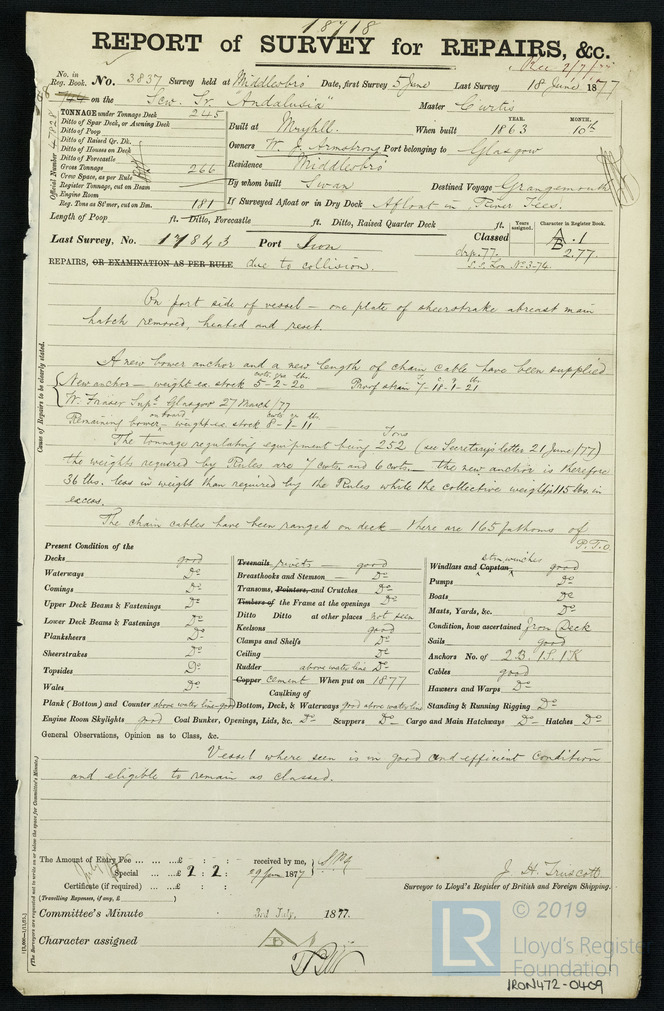 18718
REPORT of SURVEY for REPAIRS, &c.
Rec 2/7/77
No. in Reg. Book. No. 3837 Survey held at Middlesbro Date, first Survey 5 June Last Survey 18 June 1877
on the "Scw. Sr. Andalusia" Master Curtis
TONNAGE under Tonnage Deck 245
Ditto of Spar Deck, or Awning Deck
Ditto of Poop
Ditto of Raised Qr. Dk.
Ditto of Houses on Deck
Ditto of Forecastle
Gross Tonnage 266
Crew Space, as per Rule
Register Tonnage, cut on Beam
Engine Room
Reg. Tons as St'mer, cut on Bm. 181
Official Number 47828
Built at Mryhll. When built YEAR. 1863 MONTH. 10th
Owners W. J. Armstrong Port belonging to Glasgow
Residence Middlesbro
By whom built Swan Destined Voyage Grangemouth
If Surveyed Afloat or in Dry Dock Afloat in River Tees.
Length of Poop ft. Ditto, Forecastle ft. Ditto, Raised Quarter Deck ft.
Years assigned. Character in Register Book.
Last Survey, No. 17823 Port Iron Classed A.1
B 2.77.
S.S. Lon. No. 3-74.
REPAIRS, OR EXAMINATION AS PER RULE due to collision.
Cause of Repairs to be clearly stated.
On port side of vessel — one plate of sheerstrake abreast main
hatch removed, heated and reset.
A new bower anchor and a new length of chain cable have been supplied
New anchor — weight ex. stock cwts. qrs. lbs. 5-2-20 — Proof strain T. c. q. lbs 7-18-1-21
W. Fraser Supt. Glasgow 27 March /77
Remaining bower on board — weight ex. stock cwts qr lbs 8-1-11
The tonnage regulating equipment being 252 Tons (see Secretary's letter 21 June /77)
the weights required by Rules are 7 cwts. and 6 cwts. — the new anchor is therefore
36 lbs. less in weight than required by the Rules while the collective weight is 115 lbs. in
excess.
The chain cables have been ranged on deck — there are 165 fathoms of
P.T.O.
Present Condition of the
Decks good
Waterways Do
Comings Do
Upper Deck Beams & Fastenings Do
Lower Deck Beams & Fastenings Do
Planksheers Do
Sheerstrakes Do
Topsides Do
Wales Do
Plank (Bottom) and Counter above water line — good
Engine Room Skylights good Coal Bunker, Openings, Lids, &c. Do Scuppers Do Cargo and Main Hatchways Do Hatches Do
Treenails rivets — good
Breasthooks and Stemson — Do
Transoms, Pointers, and Crutches Do
Timbers of the Frame at the openings Do
Ditto Ditto at other places not seen
Keelsons good
Clamps and Shelfs Do
Ceiling Do
Rudder above water line Do
Copper Cement When put on 1877
Caulking of
Bottom, Deck, & Waterways good above water line
Windlass and Capstan steam winches good
Pumps Do
Boats Do
Masts, Yards, &c. Do
Condition, how ascertained Iron Deck
Sails good
Anchors No. of 2B. 1S. 1K
Cables good
Hawsers and Warps Do
Standing & Running Rigging Do
General Observations, Opinion as to Class, &c.
Vessel where seen is in good and efficient condition
and eligible to remain as classed.
The Amount of Entry Fee ... ... ...£ : : received by me,
Special ... ...£ 2 : 2 : 29 June 1877
Certificate (if required) ...£ : :
(Travelling Expenses, if any, £ )
J. H. Truscott
Surveyor to Lloyd's Register of British and Foreign Shipping.
Committee's Minute 3rd July, 1877.
Character assigned A B
(The Surveyors are requested not to write on or below the space for Committee's Minute.)
© 2019
LR Lloyd's Register Foundation
IRON472-0409